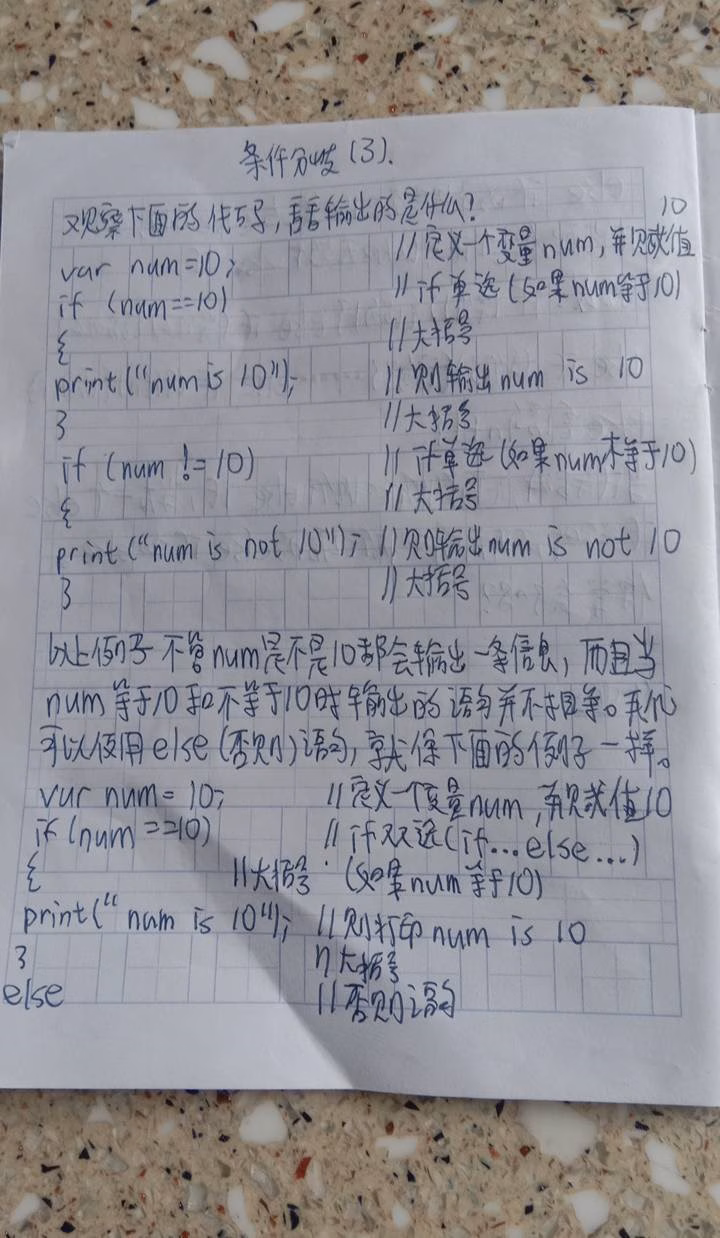 条件分歧(3).
观察下面的代码,请输出的是什么?
var num=10; //定义一个变量num,并赋值10
if (num==10) //if单选(如果num等于10)
{ //大括号
print("num is 10"); //则输出num is 10
} //大括号
if (num != 10) //if单选(如果num不等于10)
{ //大括号
print("num is not 10"); //则输出num is not 10
} //大括号
以上例子不管num是不是10都会输出一条信息,而且当
num等于10和不等于10时输出的语句并不相等。我们
可以使用else(否则)语句,就像下面的例子一样。
var num= 10; //定义一个变量num,并赋值10
if (num ==10) //if双选(if...else...)
{ //大括号 (如果num等于10)
print("num is 10"); //则打印num is 10
} //大括号
else //否则语句